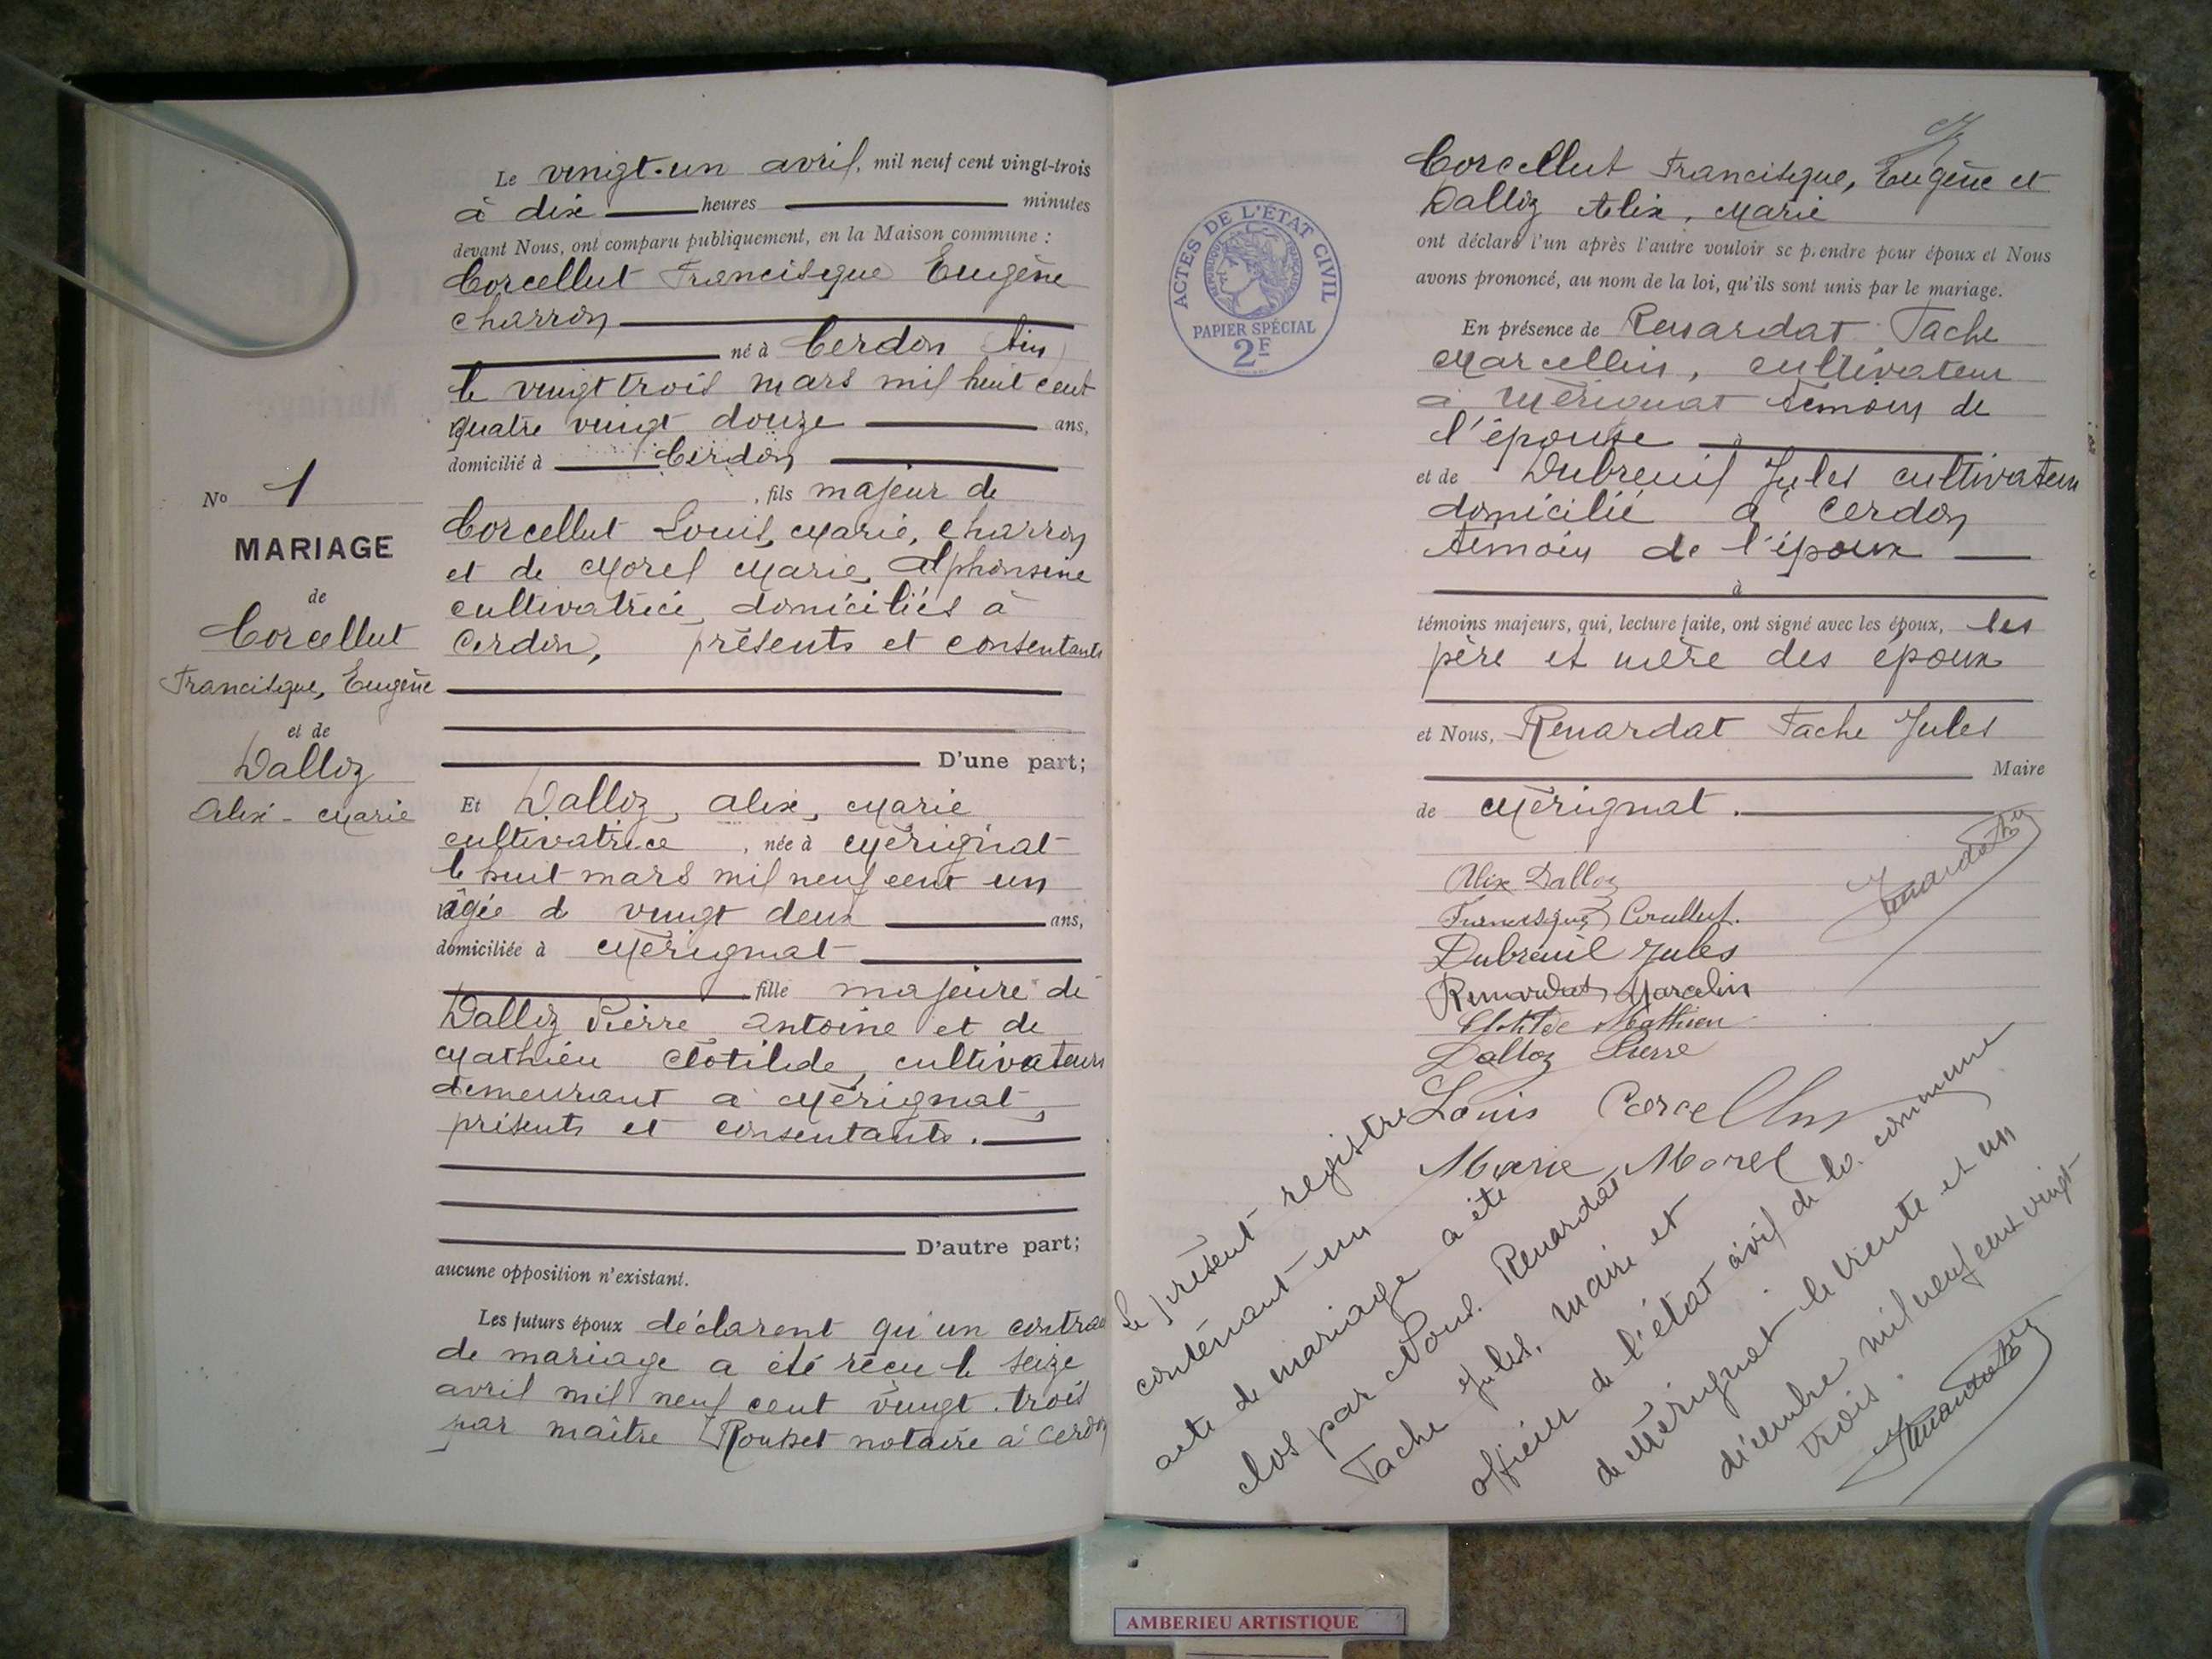 N° 1
MARIAGE
de
Corcellut
Francisque, Eugène
et de
Dalloz
Alix - Marie
Le vingt-un avril, mil neuf cent vingt-trois
à dix heures minutes
devant Nous, ont comparu publiquement, en la Maison commune :
Corcellut Francisque Eugène
charron
né à Cerdon (Ain)
le vingt trois mars mil huit cent
quatre vingt douze ans,
domicilié à Cerdon
, fils majeur de
Corcellut Louis, Marie, charron
et de Morel Marie, Alphonsine
cultivatrice, domiciliés à
Cerdon, présents et consentants
D'une part;
Et Dalloz, Alix, Marie
cultivatrice , née à Mérignat
le huit mars mil neuf cent un
âgée de vingt deux ans,
domiciliée à Mérignat
fille majeure de
Dalloz Pierre Antoine et de
Mathieu Clotilde, cultivateurs
demeurant à Mérignat,
présents et consentants.
D'autre part;
aucune opposition n'existant.
Les futurs époux déclarent qu'un contrat
de mariage a été reçu le seize
avril mil neuf cent vingt-trois
par maître Rousset notaire à Cerdon
Corcellut Francisque, Eugène et
Dalloz Alix, Marie
ont déclaré l'un après l'autre vouloir se prendre pour époux et Nous
avons prononcé, au nom de la loi, qu'ils sont unis par le mariage.
En présence de Renardat Tache
Marcellin, cultivateur
à Mérignat témoin de
l'épouse
et de Dubreuil Jules cultivateur
domicilié à Cerdon
témoin de l'époux
à
témoins majeurs, qui, lecture faite, ont signé avec les époux, les
père et mère des époux
et Nous, Renardat Tache Jules
Maire
de Mérignat.
ACTES DE L'ÉTAT CIVIL
RÉPUBLIQUE FRANÇAISE
PAPIER SPÉCIAL
2F
Alix Dalloz
Francisque Corcellut.
Dubreuil Jules
Renardat Marcelin
Clotilde Mathieu
Dalloz Pierre
Louis Corcellut
Marie Morel
Le présent registre
contenant un
acte de mariage a été
clos par Nous. Renardat
Tache Jules, maire et
officier de l'état civil de la commune
de Mérignat le trente et un
décembre mil neuf cent vingt
trois.
AMBERIEU ARTISTIQUE